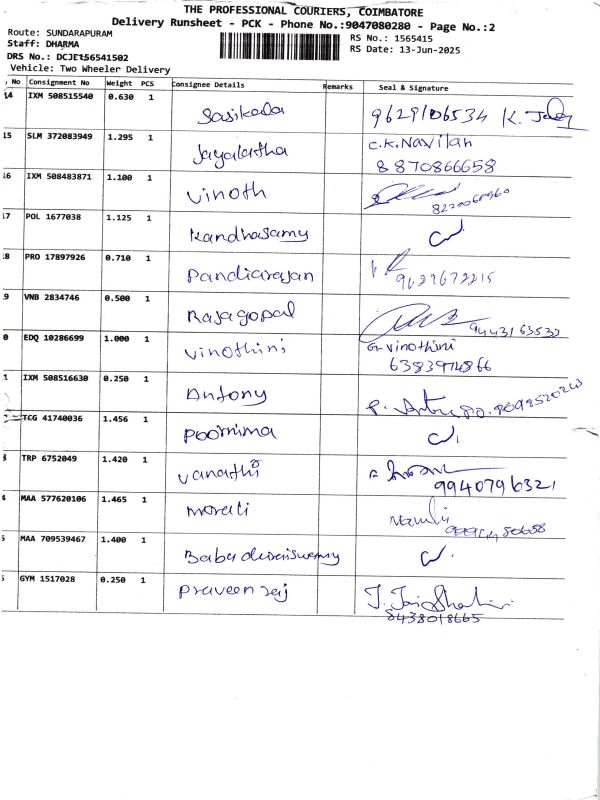 THE PROFESSIONAL COURIERS, COIMBATORE
Delivery Runsheet - PCK - Phone No.:9047080280 - Page No.:2
Route: SUNDARAPURAM
RS No.: 1565415
Staff: DHARMA
RS Date: 13-Jun-2025
DRS No.: DCJE156541502
Vehicle: Two Wheeler Delivery
No Consignment No Weight PCS Consignee Details Remarks Seal & Signature
14 IXM 508515540 0.630 1 Sasikala 9629106534 K.
15 SLM 372083949 1.295 1 Jayalatha C.K.Navilan
8870866658
16 IXM 508483871 1.100 1 Vinoth
17 POL 1677038 1.125 1 Kandhasamy
18 PRO 17897926 0.710 1 Pandiarajan
9 VNB 2834746 0.500 1 Rajagopal 9443163533
0 EDQ 10286699 1.000 1 Vinothini G.Vinothini
6383974866
1 IXM 508516630 0.250 1 Antony
TCG 41740036 1.456 1 Poornima
TRP 6752049 1.420 1 Vanathi
9940796321
4 MAA 577620106 1.465 1 Morali
5 MAA 709539467 1.400 1 Babaduraiswamy
GYM 1517028 0.250 1 Praveen raj
8438018665